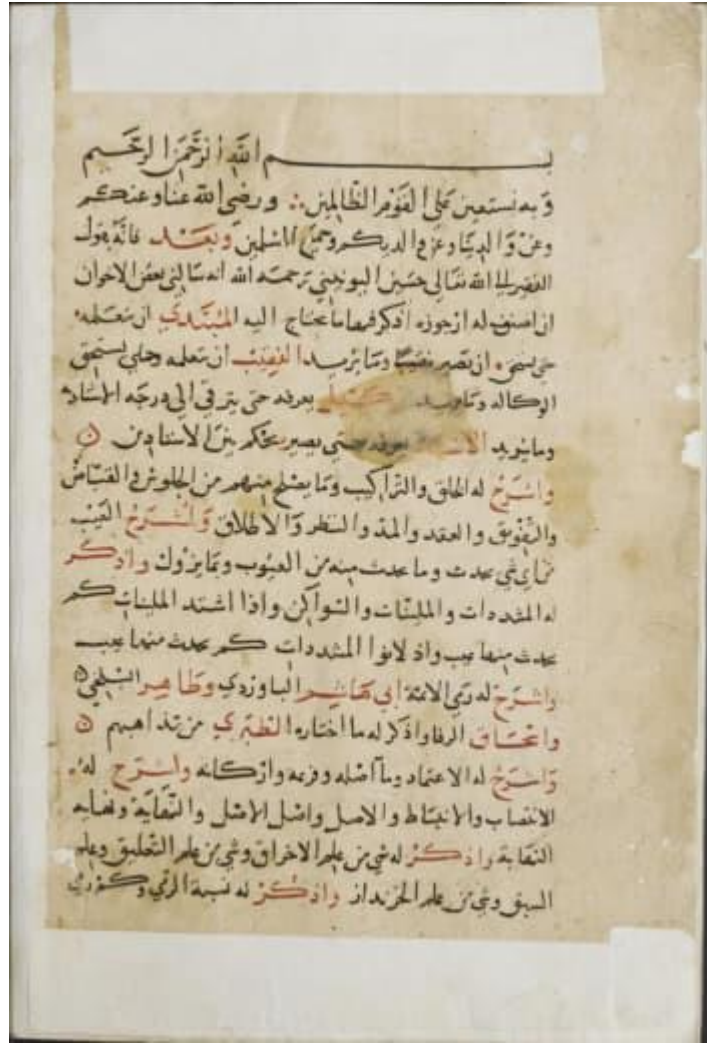 بسم الله الرحمن الرحيم
وبه نستعين على القوم الظالمين ورضي الله عنا وعنكم
وعن والدينا وعن والديكم وجميع المسلمين وبعد فانه يقول
الفقير الى الله تعالى حسين اليونيني رحمه الله انه سالني بعض الاخوان
ان اصنف له ارجوزه اذكر فيها ما يحتاج اليه المبتدي ان يتعلمه
حتى ان يصير نقيبا وما يريد النقيب ان يتعلمه وحتى يستحق
الوكاله وما يريد يعرفه حتى يترقى الى درجة الاستاد
وما يريد يعرفه حتى يصير يحكم بين الاستادين
واشرح له الخلق والتراكيب وما يصلح منهم من الجلوس والقباض
والتفويق والعقد والمد والنظر والاطلاق واشرح العيب
من اي شي يحدث وما يحدث منه من العيوب وبما يزول واذكر
له المشددات والملينات والسواكن واذا اشتد الملينات كم
يحدث منها عيب واذ لانوا المشددات كم يحدث منها عيب
واشرح له رمي الائمة ابي هاشم الباوردي وطاهر البلخي
واسحاق الرفا واذكر له ما اختاره الطبري من مذاهبهم
واشرح له الاعتماد وما اصله وفرعه واركانه واشرح له
الانتصاب والانبساط والاصل واصل الاصل والنقابة ونقابه
النقابة واذكر له شي من علم الاخراق وشي من علم التعليق وعلم
السبق وشي من علم واذكر له نسبة الرمي وكم